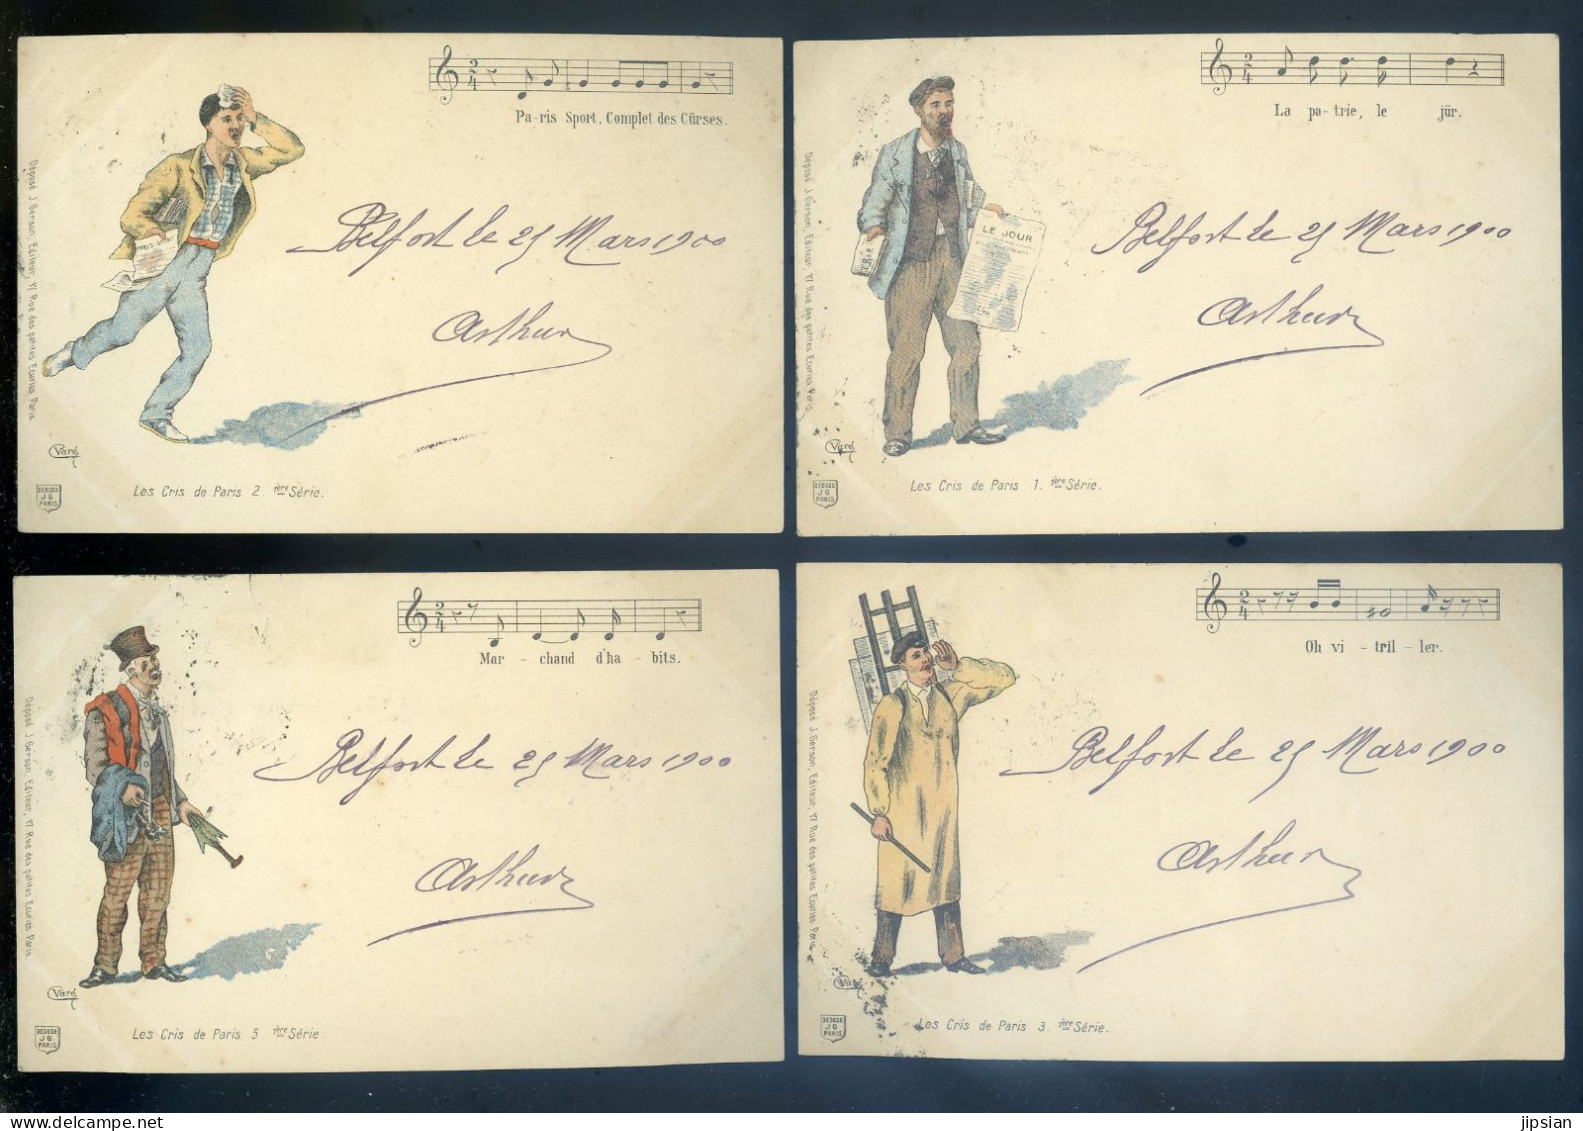 Pa-ris Sport, Complet des Cûrses.
Belfort le 25 Mars 1900
Arthur
Déposé J. Gerson, Editeur, 17 Rue des petites Ecuries Paris.
PARIS SPORT
Varé
DÉPOSÉ
J G
PARIS
Les Cris de Paris 2. 1ère Série.
La pa-trie, le jür.
LE JOUR
Belfort le 25 Mars 1900
Arthur
Déposé J. Gerson, Editeur, 17 Rue des petites Ecuries Paris.
Varé
DÉPOSÉ
J G
PARIS
Les Cris de Paris 1. 1ère Série.
Mar - chand d'ha - bits.
Belfort le 25 Mars 1900
Arthur
Déposé J. Gerson, Editeur, 17 Rue des petites Ecuries Paris.
Varé
DÉPOSÉ
J G
PARIS
Les Cris de Paris 5 1ère Série.
Oh vi - tril - ler.
Belfort le 25 Mars 1900
Arthur
Déposé J. Gerson, Editeur, 17 Rue des petites Ecuries Paris.
Varé
DÉPOSÉ
J G
PARIS
Les Cris de Paris 3. 1ère Série.
jipsian